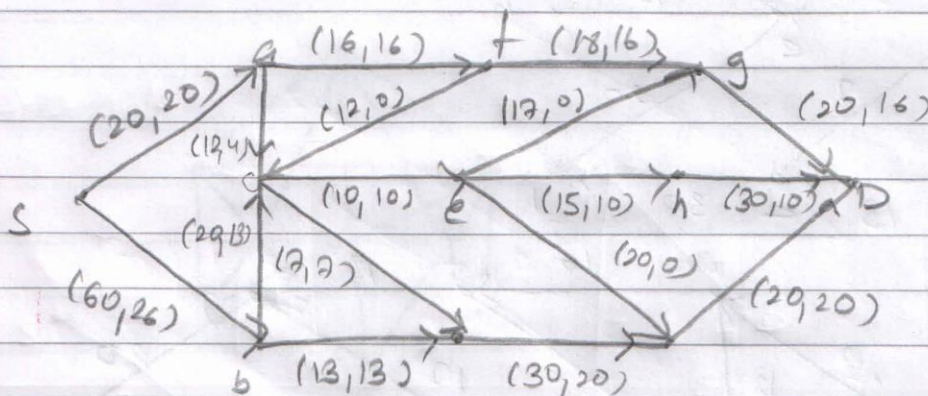 a (16,16) f (18,16) g
(20,20) (12,0) (17,0) (20,16)
(12,4)
c (10,10) e (15,10) h (30,10) D
S (29,13) (7,7) (20,0)
(60,26) (20,20)
b (13,13) (30,20)